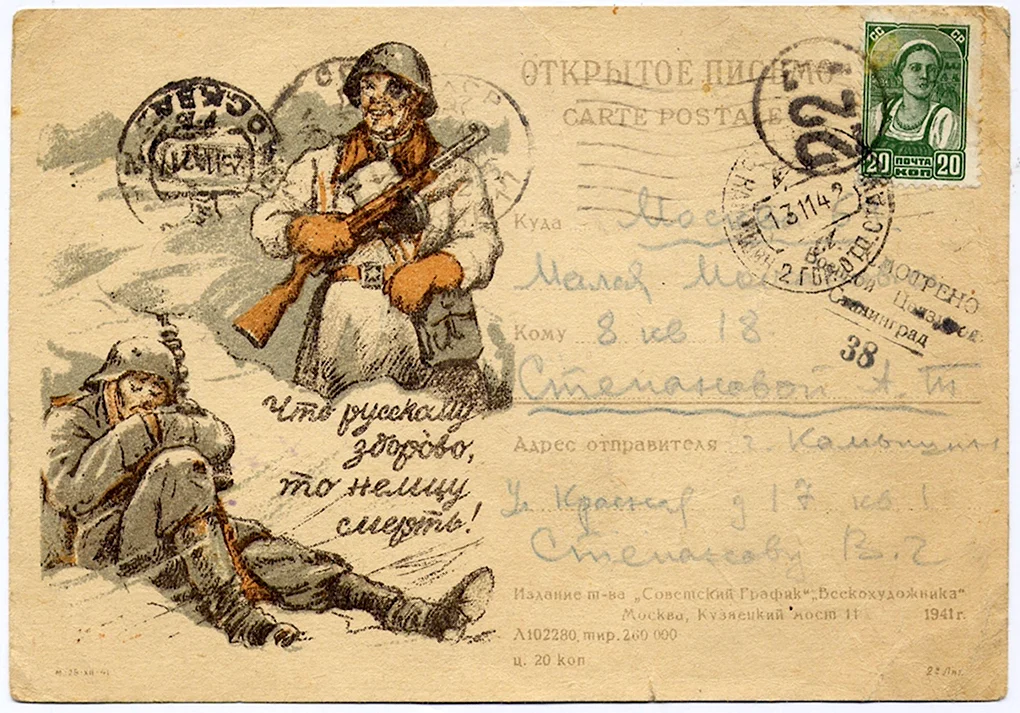 ОТКРЫТОЕ ПИСЬМО
CARTE POSTALE
СС СР
20 ПОЧТА 20
КОП
227
МОСКВА
13 11 42
Военной Цензурой
Сталинград
38
Куда Москва
Малая
Кому 8 кв 18
Степановой А. Т
Адрес отправителя г. Камышин
Ул Красная д 17 кв 1
Степанову В. Г
Что русскому
здорово,
то немцу
смерть!
Издание т-ва „Советский График“, „Всекохудожника“
Москва, Кузнецкий мост 11 1941 г.
Л102280, тир. 260 000
ц. 20 коп